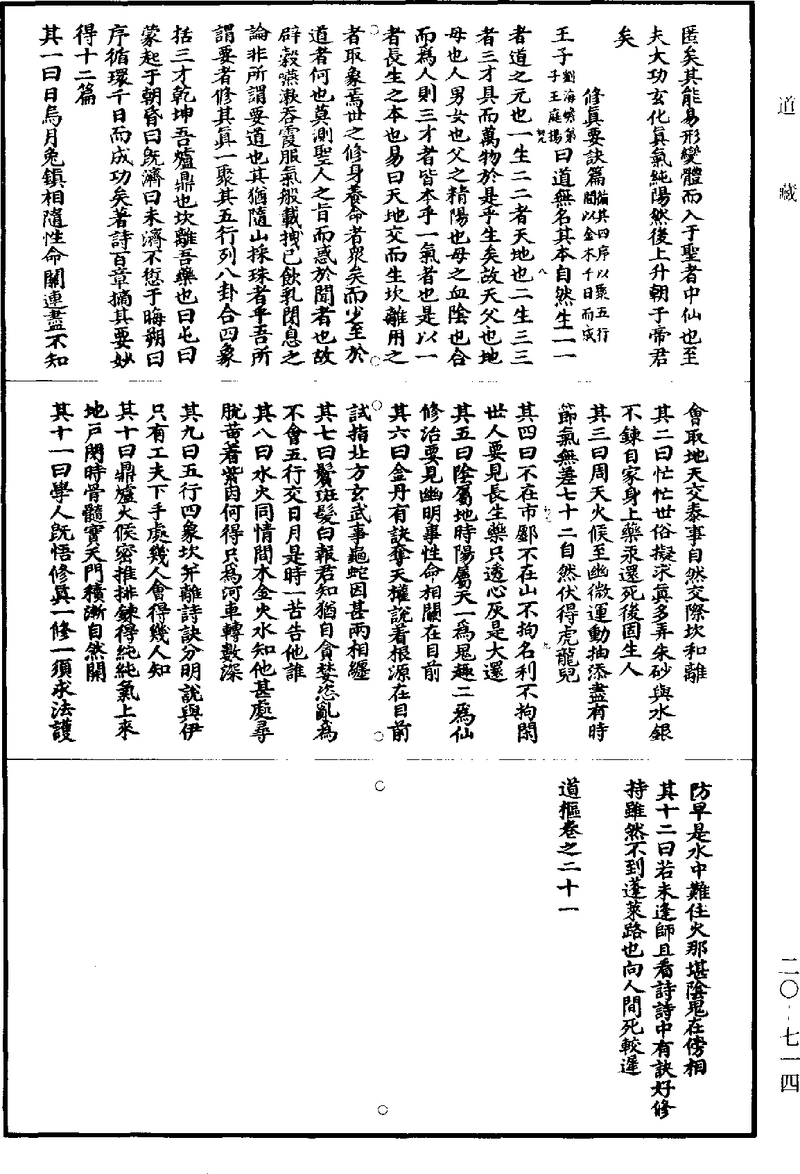 道藏
二〇-七一四
匿矣其能易形變體而入于聖者中仙也至
夫大功玄化眞氣純陽然後上升朝于帝君
矣
修眞要訣篇
備其四序以聚五行
間以金木千日而成
王子
劉海蟾第
子王庭揚
曰道無名其本自然生一一
者道之元也一生二二者天地也二生三三
者三才具而萬物於是乎生矣故天父也地
母也人男女也父之精陽也母之血陰也合
而爲人則三才者皆本乎一氣者也是以一
者長生之本也易曰天地交而生坎離用之
者取象焉世之修身養命者衆矣而少至於
道者何也莫測聖人之旨而惑於聞者也故
辟穀嚥漱吞霞服氣般載拽已飲乳閉息之
論非所謂要道也其猶隨山採珠者乎吾所
謂要者修其眞一聚其五行列八卦合四象
括三才乾坤吾爐鼎也坎離吾藥也曰屯曰
蒙起于朝昏曰旣濟曰未濟不愆于晦朔曰
序循環千日而成功矣著詩百章摘其要妙
得十二篇
其一曰日烏月兔鎮相隨性命關連盡不知
會取地天交泰事自然交際坎和離
其二曰忙忙世俗擬求眞多弄朱砂與水銀
不鍊自家身上藥汞還死後固生人
其三曰周天火候至幽微運動抽添盡有時
節氣無差七十二自然伏得虎龍兒
其四曰不在市鄽不在山不拘名利不拘閑
世人要見長生藥只透心灰是大還
其五曰陰屬地時陽屬天一爲鬼趣二爲仙
修治要見幽明事性命相關在目前
其六曰金丹有訣奪天權說着根源在目前
試指北方玄武事龜蛇因甚兩相纏
其七曰鬢斑髮白報君知猶自貪婪恣亂爲
不會五行交日月是時一苦告他誰
其八曰水火同情間木金火水知他甚處尋
脫黃著紫因何得只爲河車轉數深
其九曰五行四象坎并離詩訣分明說與伊
只有工夫下手處幾人會得幾人知
其十曰鼎爐火候密推排鍊得純純氣上來
地戶閉時骨髓實天門積漸自然開
其十一曰學人旣悟修眞一修一須求法護
防早是水中難住火那堪陰鬼在傍相
其十二曰若未逢師且看詩詩中有訣好修
持雖然不到蓬萊路也向人間死較遲
道樞卷之二十一